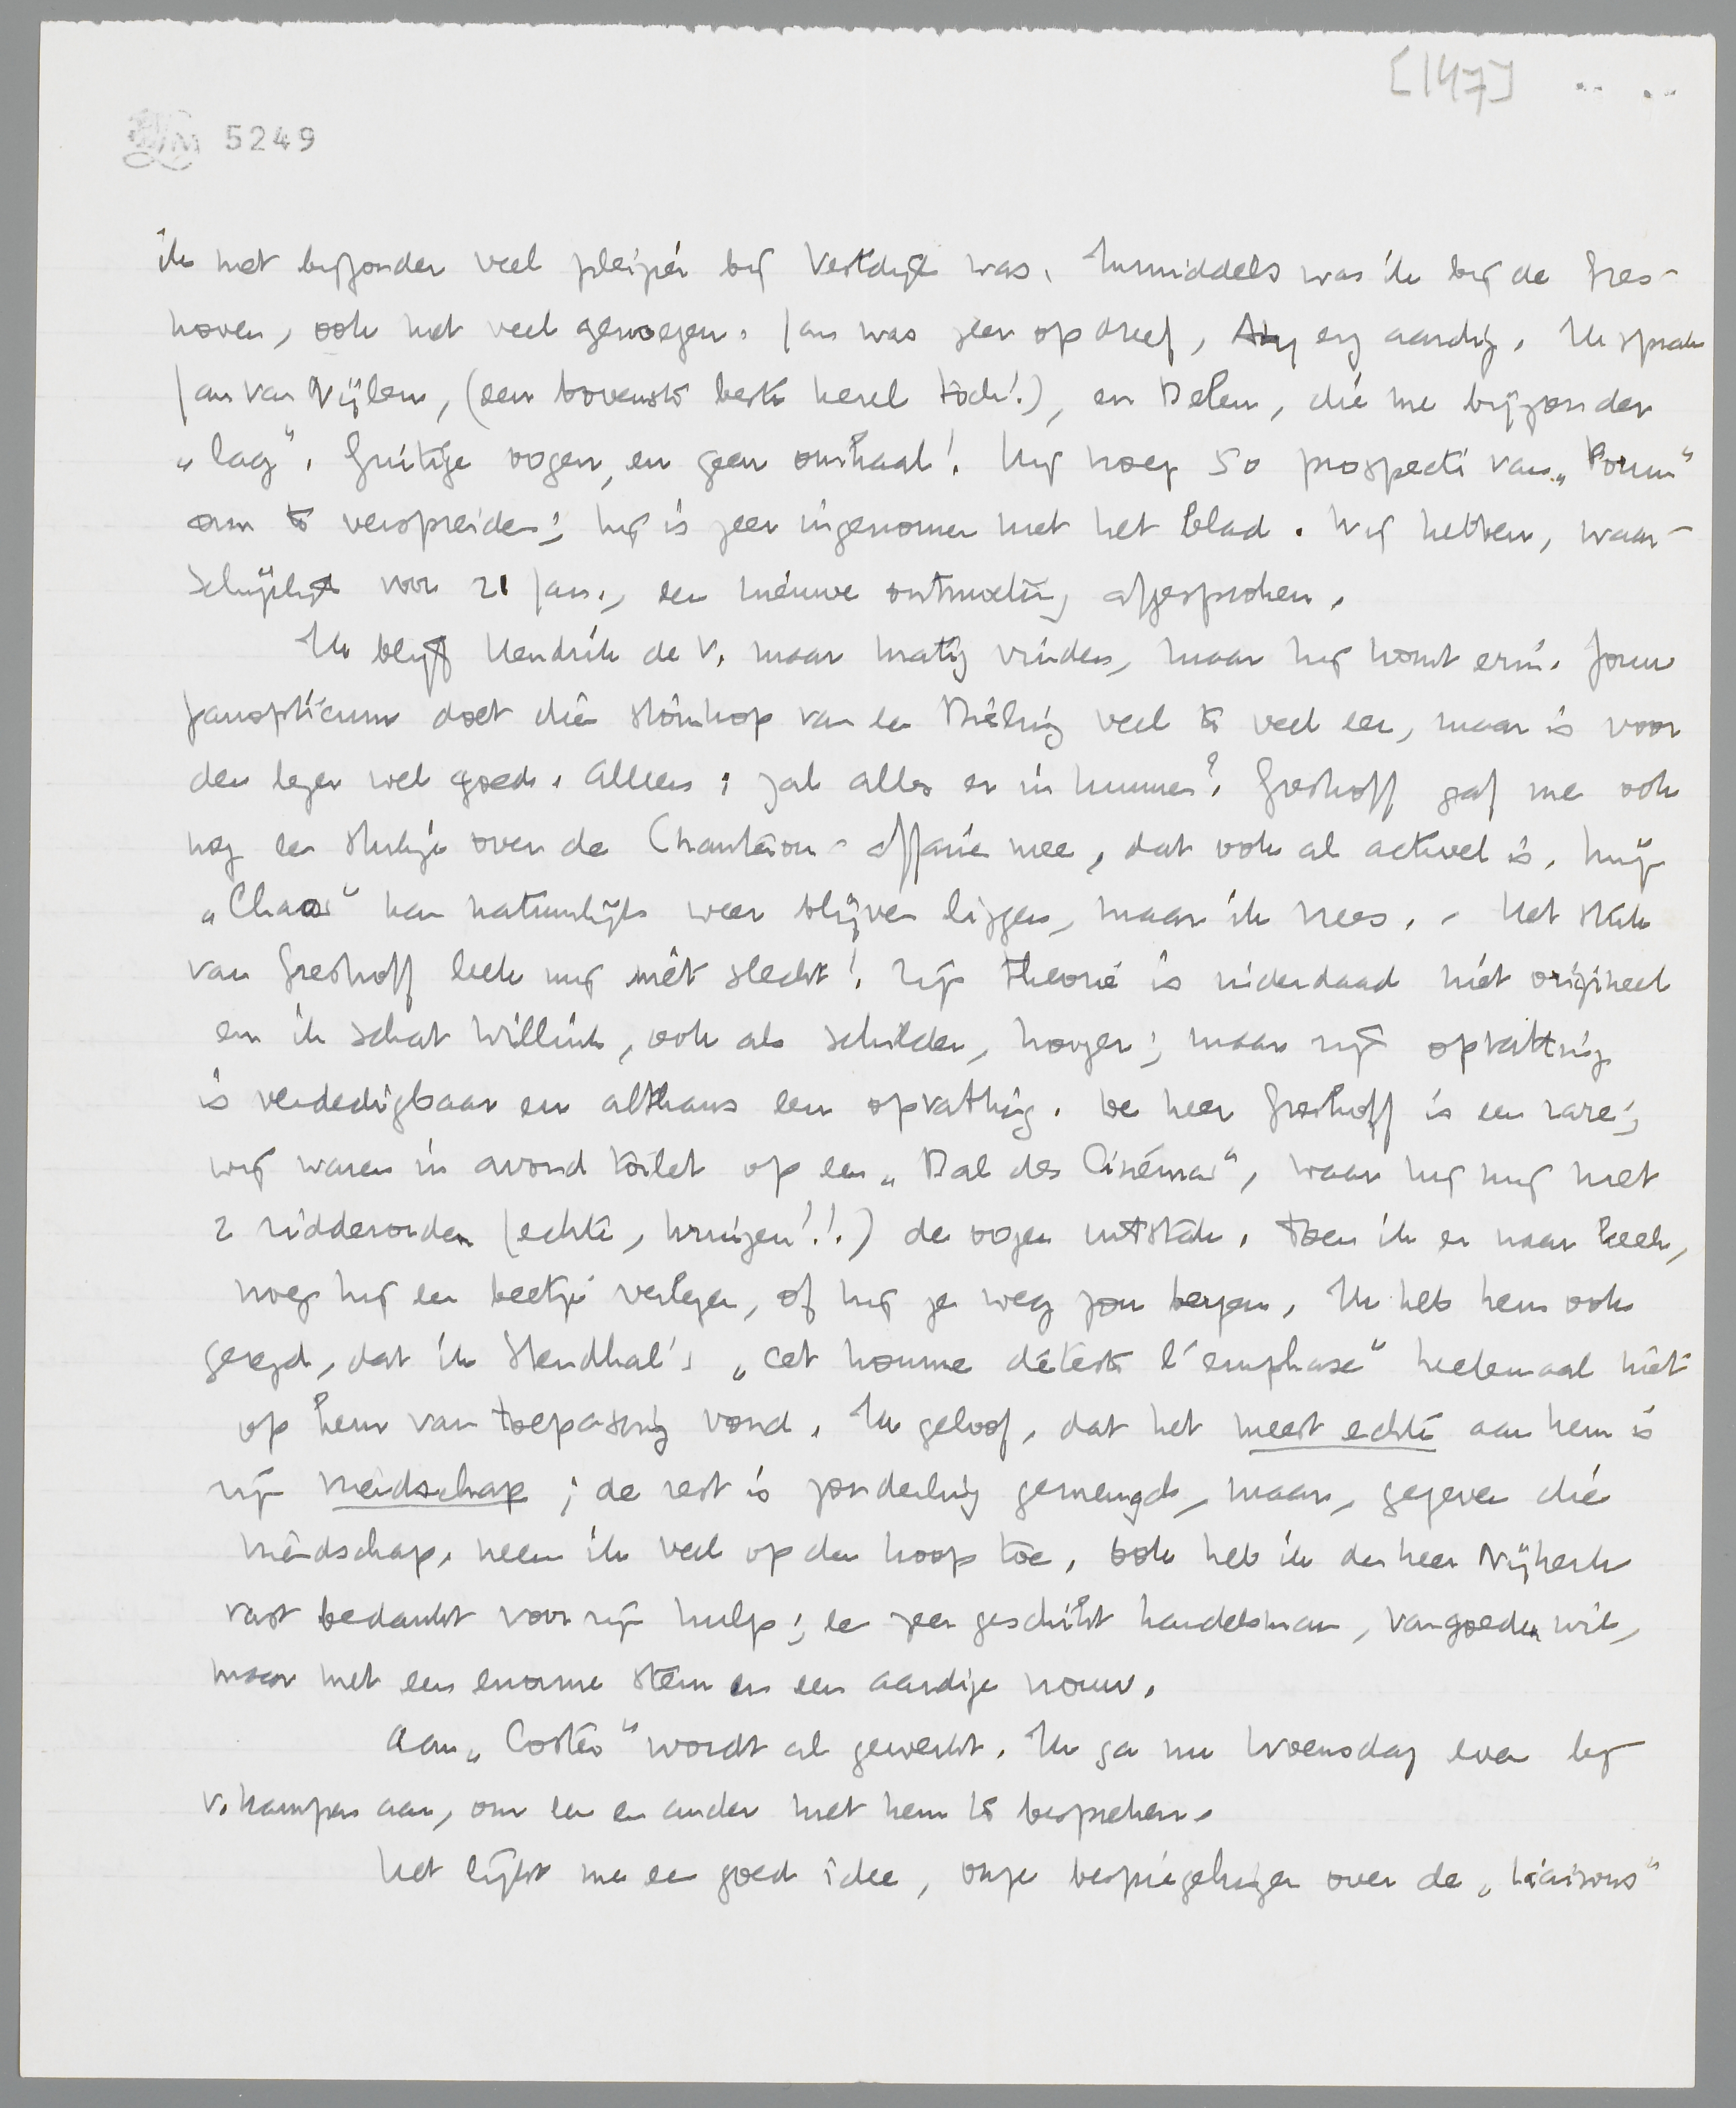 [147]
5249
ik met bijzonder veel pleizier bij Vestdijk was. Inmiddels was ik bij de Gres-
hoven, ook met veel genoegen. Jan was zeer op dreef, Aty erg aardig. Ik sprak
Jan van Nijlen, (een bovenste beste kerel toch!), en Delen, die me bijzonder
„lag". Guitige oogen, en geen omhaal! Hij kreeg 50 prospecti van „Forum"
om te verspreiden; hij is zeer ingenomen met het blad. Wij hebben, waar-
schijnlijk voor 21 Jan., een nieuwe ontmoeting afgesproken.
Ik blijf Hendrik de V. maar matig vinden, maar hij komt erin. Jouw
panopticum doet die stomkop van een Thieling veel te veel eer, maar is voor
den lezer wel goed. Alleen: zal alles er in kunnen? Greshoff gaf me ook
nog een stukje over de Chanteion-affaire mee, dat ook al actueel is. Mijn
„Chaos" kan natuurlijk weer blijven liggen, maar ik vrees. - Het stuk
van Greshoff leek mij niet slecht! Zijn theorie is inderdaad niet origineel
en ik schat Willink, ook als schilder, hooger; maar zijn opvatting
is verdedigbaar en althans een opvatting. De heer Greshoff is een rare;
wij waren in avond toilet op een „Bal des Cinémas", waar hij mij met
2 ridderorden (echte, kruizen!!) de oogen uitstak. Toen ik er naar keek,
vroeg hij een beetje verlegen, of hij ze weg zou bergen. Ik heb hem ook
gezegd, dat ik Stendhal's „cet homme déteste l'emphase" heelemaal niet
op hem van toepassing vond. Ik geloof, dat het meest echte aan hem is
zijn vriendschap; de rest is zonderling gemengd, maar, gegeven die
vriendschap, neem ik veel op den koop toe. Ook heb ik den heer Nijkerk
vast bedankt voor zijn hulp; een zeer geschikt handelsman, van goeden wil,
maar met een enorme stem en een aardige vrouw.
Aan „Coster" wordt al gewerkt. Ik ga nu Woensdag even bij
v. Kampen aan, om een en ander met hem te bespreken.
Het lijkt me een goed idee, onze bespiegelingen over de „Liaisons"